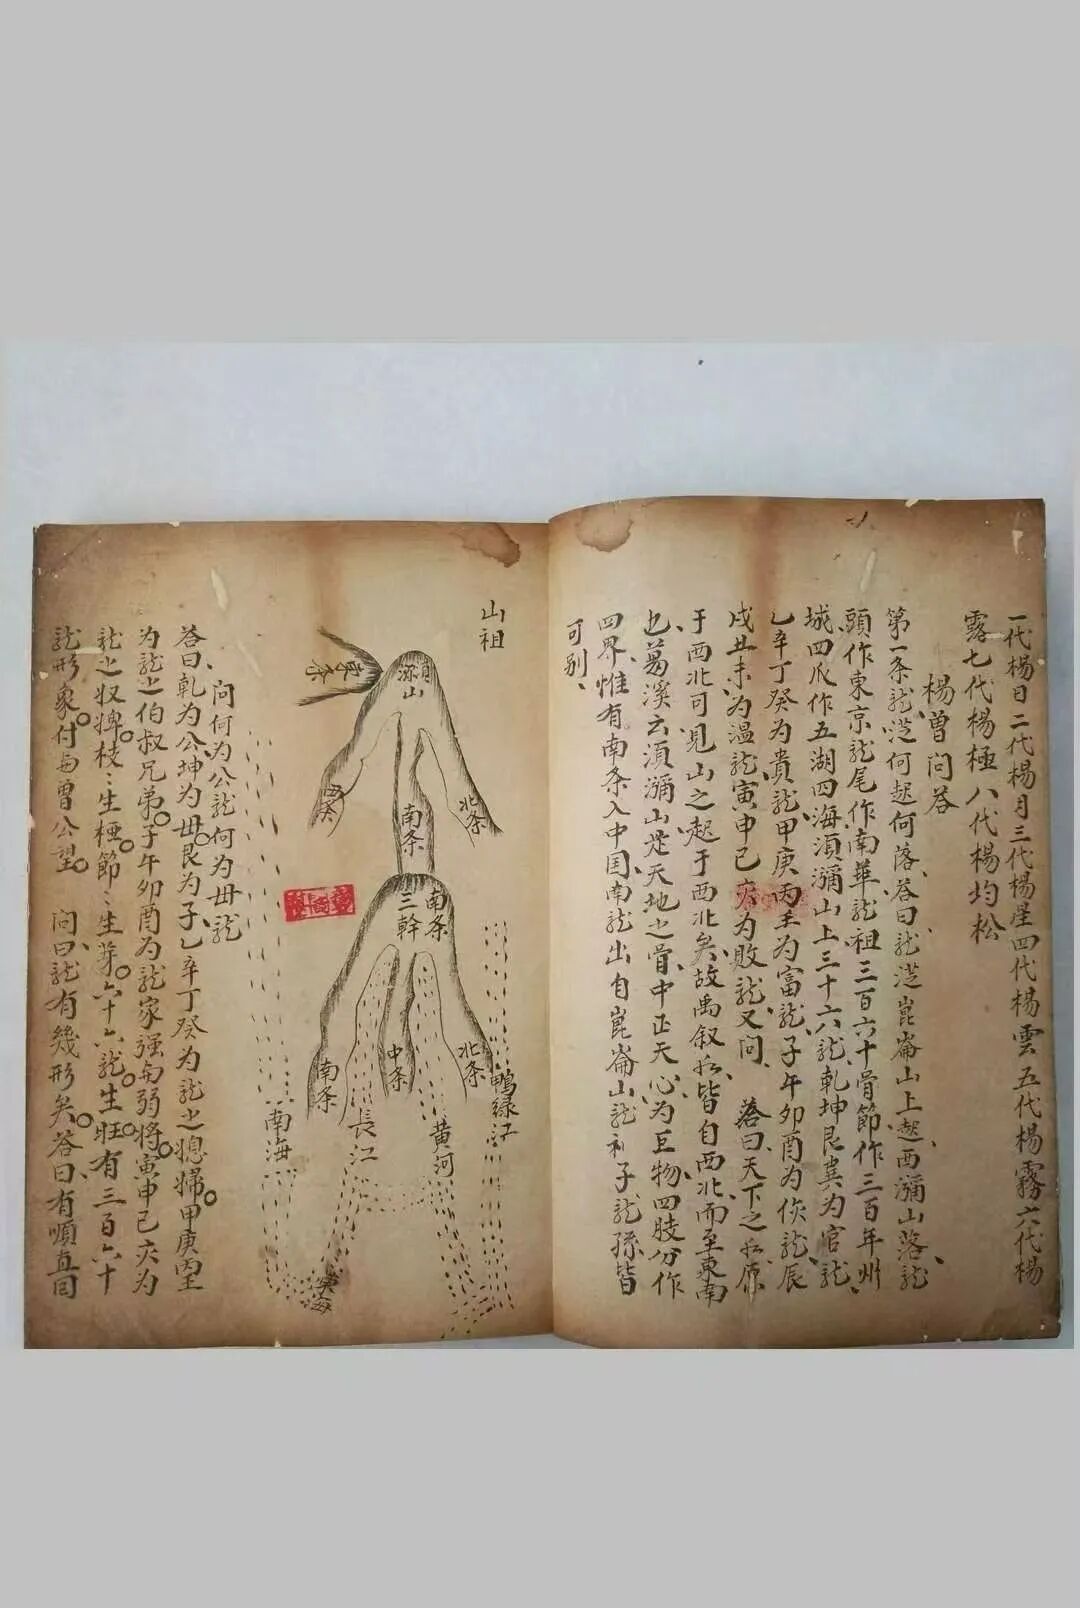 一代楊日二代楊月三代楊星四代楊雲五代楊霧六代楊
露七代楊極八代楊均松
楊曽問答
第一条龍従何起何落答曰龍従崑崙山上起西瀰山落龍
頭作東京龍尾作南華龍祖三百六十骨節作三百年州
城四爪作五湖四海須瀰山上三十六龍乾坤艮巽为官龍
乙辛丁癸为貴龍甲庚丙壬为富龍子午卯酉为侯龍辰
戌丑未为温龍寅申巳亥为敗龍又问答曰天下之原
于西北可見山之起于西北矣故禹叙皆自西北而至東南
也葛溪云須瀰山是天地之骨中正天心为巨物四肢分作
四界惟有南条入中国南龍出自崑崙山龍子龍孫皆
可别
山祖
須瀰山
東条
西条
南条
北条
南条三幹
南条
中条
北条
南海
長江
黄河
鴨緑江
问何为公龍何为毌龍
答曰乾为公坤为毌艮为子乙辛丁癸为龍之媳婦甲庚丙壬
为龍之伯叔兄弟子午卯酉为龍家强與弱将寅申巳亥为
龍之奴婢枝〻生極節〻生芽六十六龍生旺有三百六十
龍形象付與曽公望 问曰龍有幾形矣答曰有順直回